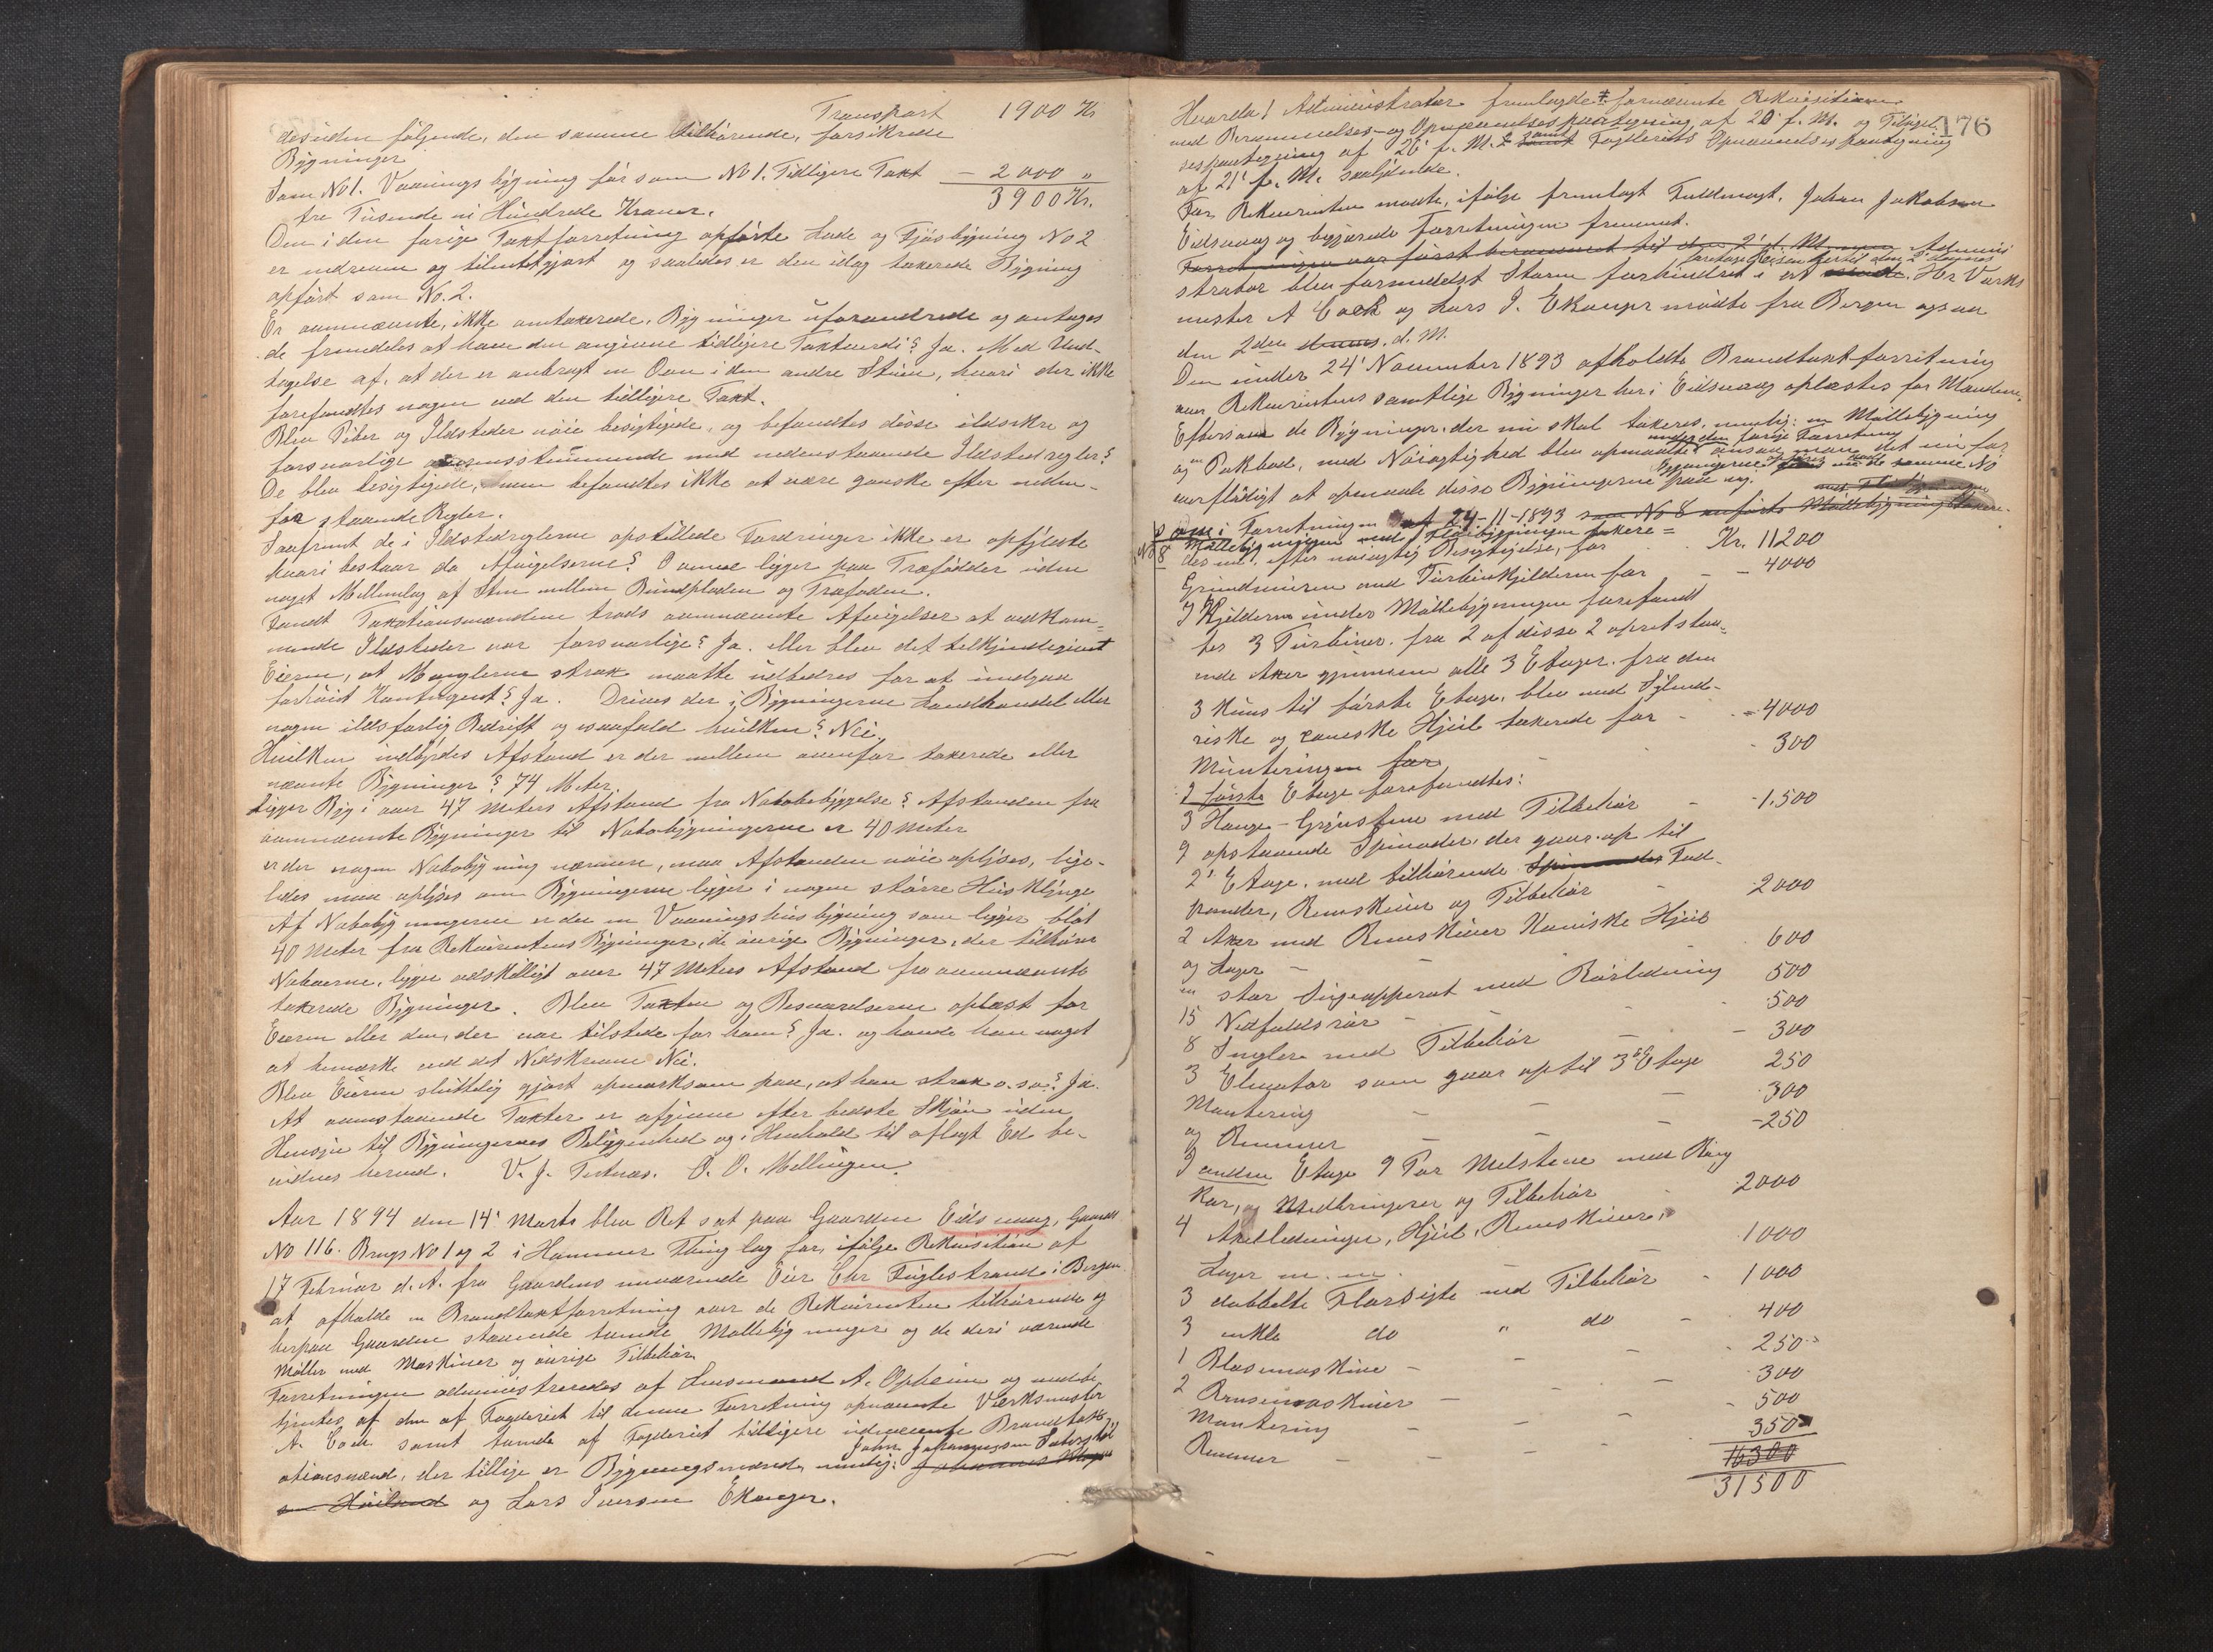 Transport 1900 Kr
desuden følgende, den samme tilhørende, forsikrede
Bygninger
Som No 1. Vaanings bygning før som No 1. Tidligere Taxt – 2000 "
3900 Kr.
tre Tusende ni Hundrede Kroner.
Den i den forrige Taxtforretning opførte Lade og Fjøsbygning No 2
er nedreven og tilintetgjort og saaledes er den idag taxerede Bygning
opført som No. 2.
Er ovennævnte, ikke omtaxerede, Bygninger uforandrede og antages
de fremdeles at have den angivne tidligere Taxtværdi? Ja. Med Und-
tagelse af, at der er anbragt en Ovn i den andre Stue, hvori der ikke
forefandtes nogen ved den tidligere Taxt.
Blev Piber og Ildsteder nøie besigtigede, og befandtes disse ildsikre og
forsvarlige overensstemmende med nedenstaaende Ildstedregler?
De blev besigtigede, men befandtes ikke at være ganske efter neden-
for staaende Regler.
Saafremt de i Ildstedreglerne opstillede Fordringer ikke er opfyldte
hvori bestaar da Afvigelserne? Ovnene ligger paa Træfødder uden
noget Mellemlag af Sten mellem Bundpladen og Træfoden.
Fandt Taxationsmændene trods ovennævnte Afvigelser at vedkom-
mende Ildsteder var forsvarlige? Ja. eller blev det tilkjendegivet
Eieren, at Manglerne strax maatte udbedres for at undgaa
forhøiet Kontingent? Ja. Drives der i Bygningerne Landhandel eller
nogen ildsfarlig Bedrift og isaafald hvilken? Nei.
Hvilken indbyrdes Afstand er der mellem ovenfor taxerede eller
nævnte Bygninger? 74 Meter.
Ligger Byg i over 47 Meters Afstand fra Nabobebyggelse? Afstanden fra
ovennævnte Bygninger til Nabobygningerne er 40 Meter
er der nogen Nabobygning nærmere, maa Afstanden nøie oplyses, lige-
ledes maa oplyses om Bygningerne ligger i nogen større Husklynge
Af Nabobygningerne er der en Vaaningshusbygning som ligger blot
40 Meter fra Rekvirentens Bygninger, de øvrige Bygninger, der tilhører
Naboerne, ligger adskilligt over 47 Meters Afstand fra ovennævnte
taxerede Bygninger. Blev Taxten og Besvarelserne oplæst for
Eieren eller den, der var tilstede for ham? Ja. og havde han noget
at bemærke ved det Nedskrevne Nei.
Blev Eieren sluttelig gjort opmærksom paa, at han strax o.s.v.? Ja.
At ovenstaaende Taxter er afgivne efter bedste Skjøn uden
Hensyn til Bygningernes Beliggenhed og i Henhold til aflagt Ed be-
vidnes herved. V. J. Tertnæs. O. O. Mellingen.
Aar 1894 den 14' Marts blev Ret sat paa Gaarden Eidsvaag, Gaards
No 116. Brugs No 1 og 2 i Hammer Thinglag for, ifølge Rekvisition af
17 Februar d. A. fra Gaardens nuværende Eier Chr Fuglestrand i Bergen
at afholde en Brandtaxtforretning over de Rekvirenten tilhørende og
herpaa Gaarden staaende tvende Møllebygninger og de deri værende
Møller med Maskiner og øvrige Tilbehør.
Forretningen administreredes af Lensmand A. Opheim og medbe-
tjentes af den af Fogderiet til denne Forretning opnævnte Værksmester
A. Cook samt tvende af Fogderiet tidligere udnævnte Brandtax-
John Johannessen
ationsmænd, der tillige er Bygningsmænd, nemlig: Johannes
Høiland og Lars Iversen Ekanger.
176
Hvorda! Administrator fremlagde fornævnte Rekvisition
med Berammelses- og Opnævnelsespaategning af 20' f. M. og Tilsigel-
sespaategning af 26' f. M. samt Fogderiets Opnævnelsespaategning
af 21' f. M. saalydende.
For Rekvirenten mødte, ifølge fremlagt Fuldmagt, Johan Jakobsen
Eidsvaag og begjærede Forretningen fremmet.
Forretningen var først berammet til den 2' d. M. men Admini-
foretage Reisen hertil den 2' dennes
strator blev formedelst Storm forhindret i at. Hr Værks
mester A Cook og Lars I. Ekanger mødte fra Bergen ogsaa
den 2den d. M.
Den under 24' November 1893 afholdte Brandtaxtforretning
over Rekvirentens samtlige Bygninger her i Eidsvaag oplæstes for Mændene.
Eftersom de Bygninger, der nu skal taxeres, nemlig: en Møllebygning
og en Pakbod, med Nøiagtighed blev opmaalte under den forrige Forretning ansaa man det nu for
overflødigt at opmaale disse Bygningerne paa ny. Bygningerne opføres nu under samme No
som i Forretningen af 24-11-1893 som No 8 anførte Møllebygning taxere-
No 8 Møllebygningen med Fløibygningen taxere=
des nu, efter nøiagtig Besigtigelse, for Kr. 11200
Grundmuren med Turbinkjelderen for – – 4000
I Kjelderen under Møllebygningen forefandt
tes 3 Turbiner. fra 2 af disse 2 opretstaa-
ende Axer gjennem alle 3 Etager. fra den
3 kuns til første Etage. blev med Sylind-
riske og coniske Hjul taxerede for – 4000
Munteringen for – 300
I første Etage forefandtes:
3 Hauge-Grynstene med Tilbehør – 1.500
9 opstaaende Spinader der gaar op til
2' Etage. med tilhørende Fod-
pander, Remskiver og Tilbehør 2000
2 Axer med Remskiver Koniske Hjul
og Lager – 600
en stor Sigteapperat med Rørledning 500
15 Nedfaldsrør – 500
8 Snegler med Tilbehør – 300
3 Elevator som gaar op til 3die Etage 250
Montering – – – 300
og Remmer – – – 250
I anden Etage 9 Par Melstene med Ring
Kar, og Medbringerer og Tilbehør 2000
4 Axelledninger, Hjul, Remskiver,
Lager m. m. – 1000
3 dobbelte Florsigte med Tilbehør – 1000
3 enkle do " do – 400
1 Blæsemaskine – – – 250
2 Rensemaskiner – – – 300
Montering – – – 500
Remmer – – – 350
16300
31500